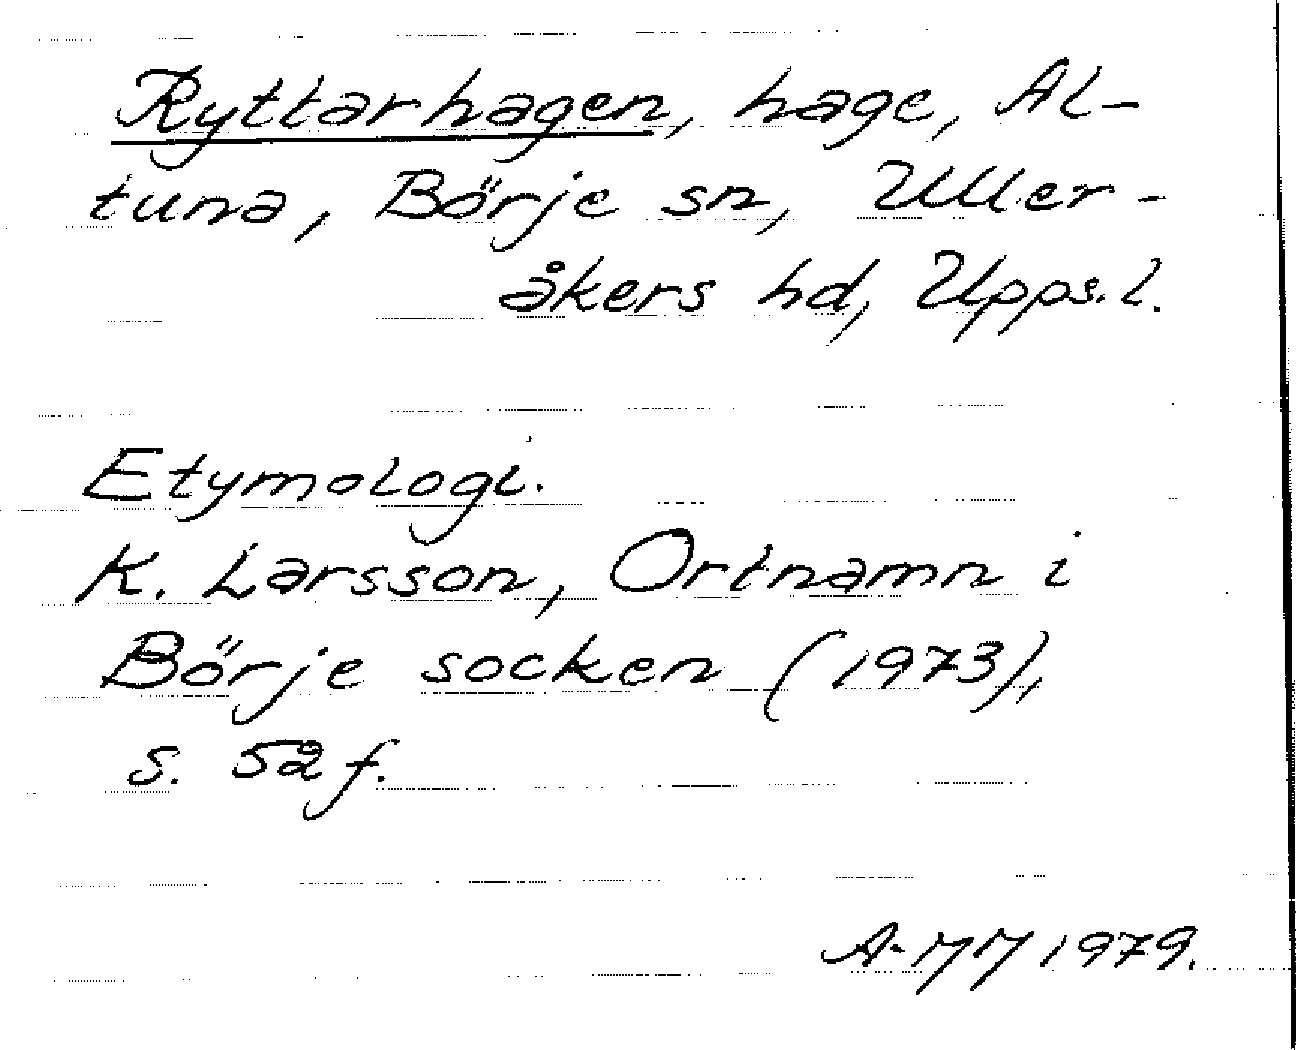 Ryttarhagen, hage, Al-
tuna, Börje sn, Uller-
åkers hd, Upps. l.
Etymologi.
K. Larsson, Ortnamn i
Börje socken (1973),
s. 52 f.
A-MM 1979.